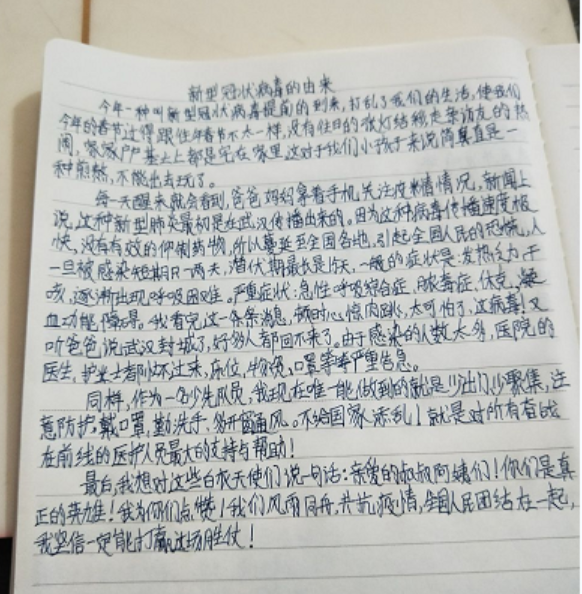 新型冠状病毒的由来
今年一种叫新型冠状病毒提前的到来,打乱了我们的生活,使我们
今年的春节过得跟往年春节不太一样,没有往日的张灯结彩走亲访友的热
闹,家家户户基本上都是宅在家里这对于我们小孩子来说简直是一
种煎熬,不能出去玩了。
每一天醒来就会看到,爸爸妈妈拿着手机关注疫情情况,新闻上
说,这种新型肺炎最初是在武汉传播出来的,因为这种病毒传播速度极
快,没有有效的抑制药物,所以蔓延至全国各地,引起全国人民的恐慌,人
一旦被感染短期只一两天,潜伏期最长是15天,一般的症状是:发热乏力干
咳,逐渐出现呼吸困难。严重症状:急性呼吸综合症,脓毒症,休克,凝
血功能障碍。我看完这一条条消息,顿时心惊肉跳,太可怕了,这病毒!又
听爸爸说武汉封城了,好多人都回不来了。由于感染的人数太多,医院的
医生,护士都忙不过来,床位,物资,口罩等等严重告急。
同样,作为一名少先队员,我现在唯一能做到的就是少出门,少聚集,注
意防护,戴口罩,勤洗手,多开窗通风。不给国家添乱!就是对所有奋战
在前线的医护人员最大的支持与帮助!
最后,我想对这些白衣天使们说一句话:亲爱的叔叔阿姨们!你们是真
正的英雄!我为你们点赞!我们风雨同舟,共抗疫情,全国人民团结在一起,
我坚信一定能打赢这场胜仗!